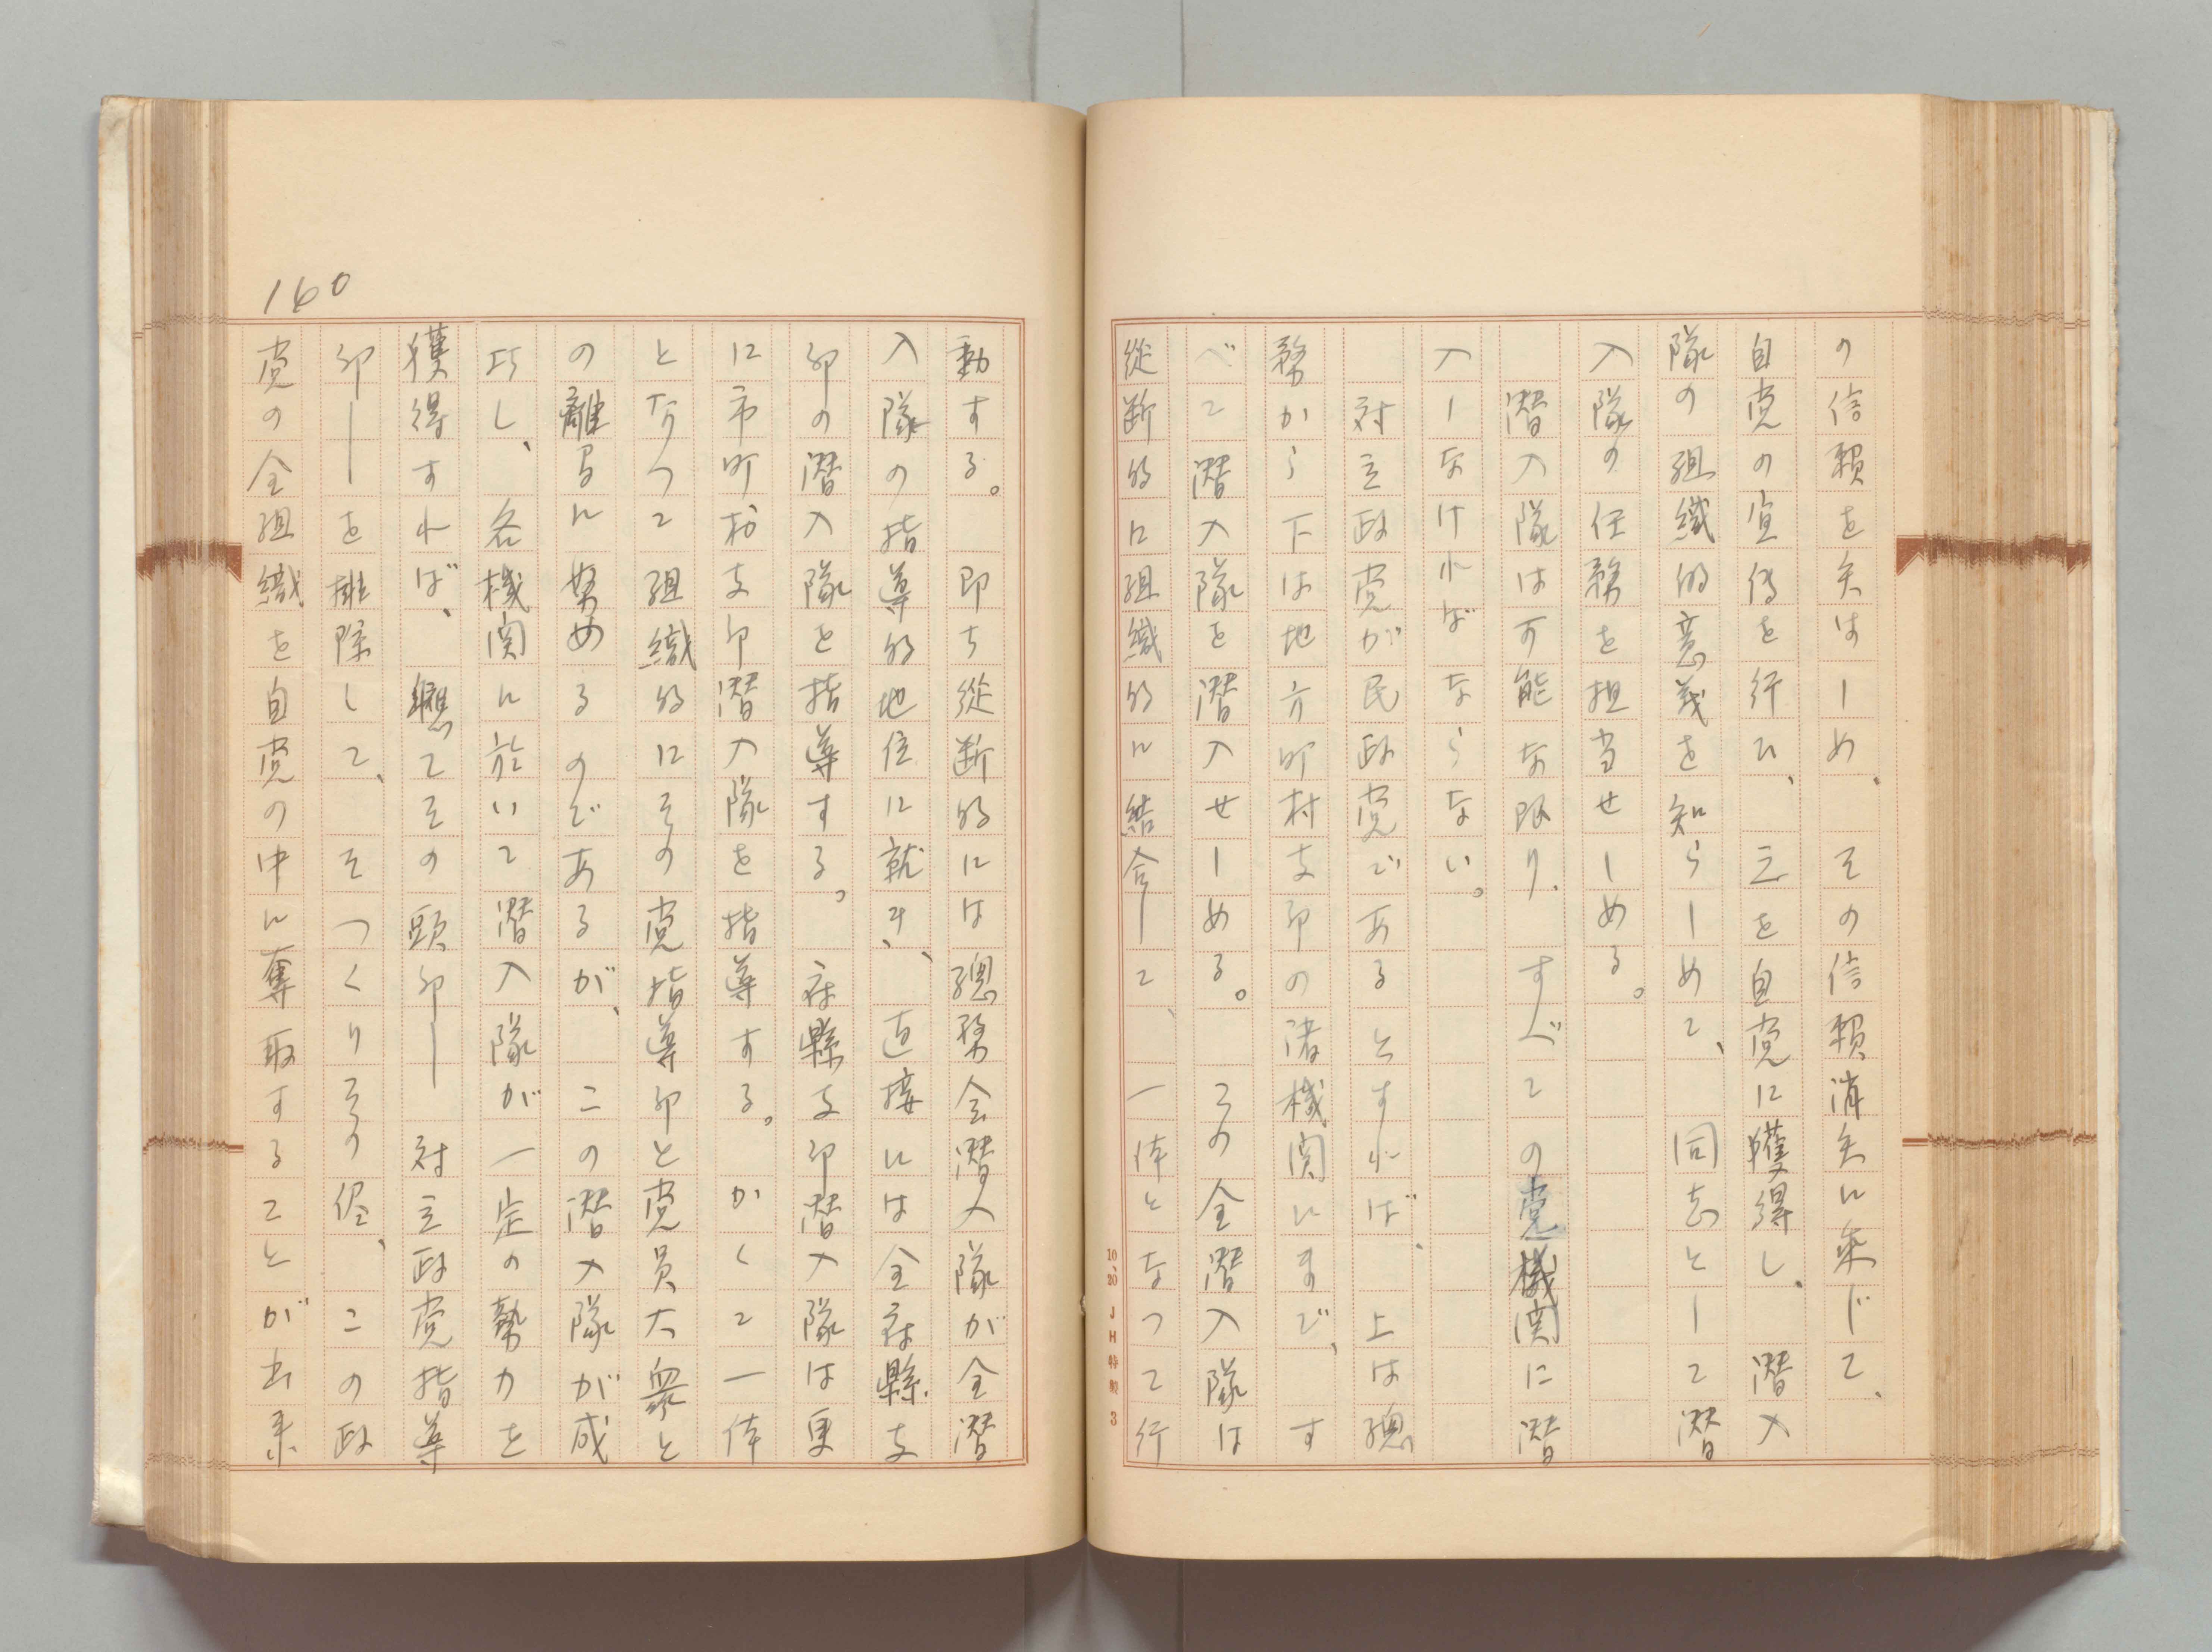 の信頼を失はしめ、その信頼消失に乗じて、
自党の宣傳を行ひ、之を自党に獲得し、潜入
隊の組織的意義を知らしめて、同志として潜
入隊の任務を担当せしめる。
潜入隊は可能な限り、すべての党機関に潜
入しなければならない。
対立政党が民政党であるとすれば、上は總
務から下は地方町村支部の諸機関にまで、す
べて潜入隊を潜入せしめる。この全潜入隊は
從断的に組織的に結合して、一体となつて行
10.20 JH特製 3
動する。即ち從断的には總務会潜入隊が全潜
入隊の指導的地位に就き、直接には全府縣支
部の潜入隊を指導する。府縣支部潜入隊は更
に市町村支部潜入隊を指導する。かくて一体
となつて組織的にその党指導部と党員大衆と
の離間に努めるのであるが、この潜入隊が成
功し、各機関に於いて潜入隊が一定の勢力を
獲得すれば、總てその頭部―対立政党指導
部―を排除して、そつくりその侭、この政
党の全組織を自党の中に奪取することが出来
160